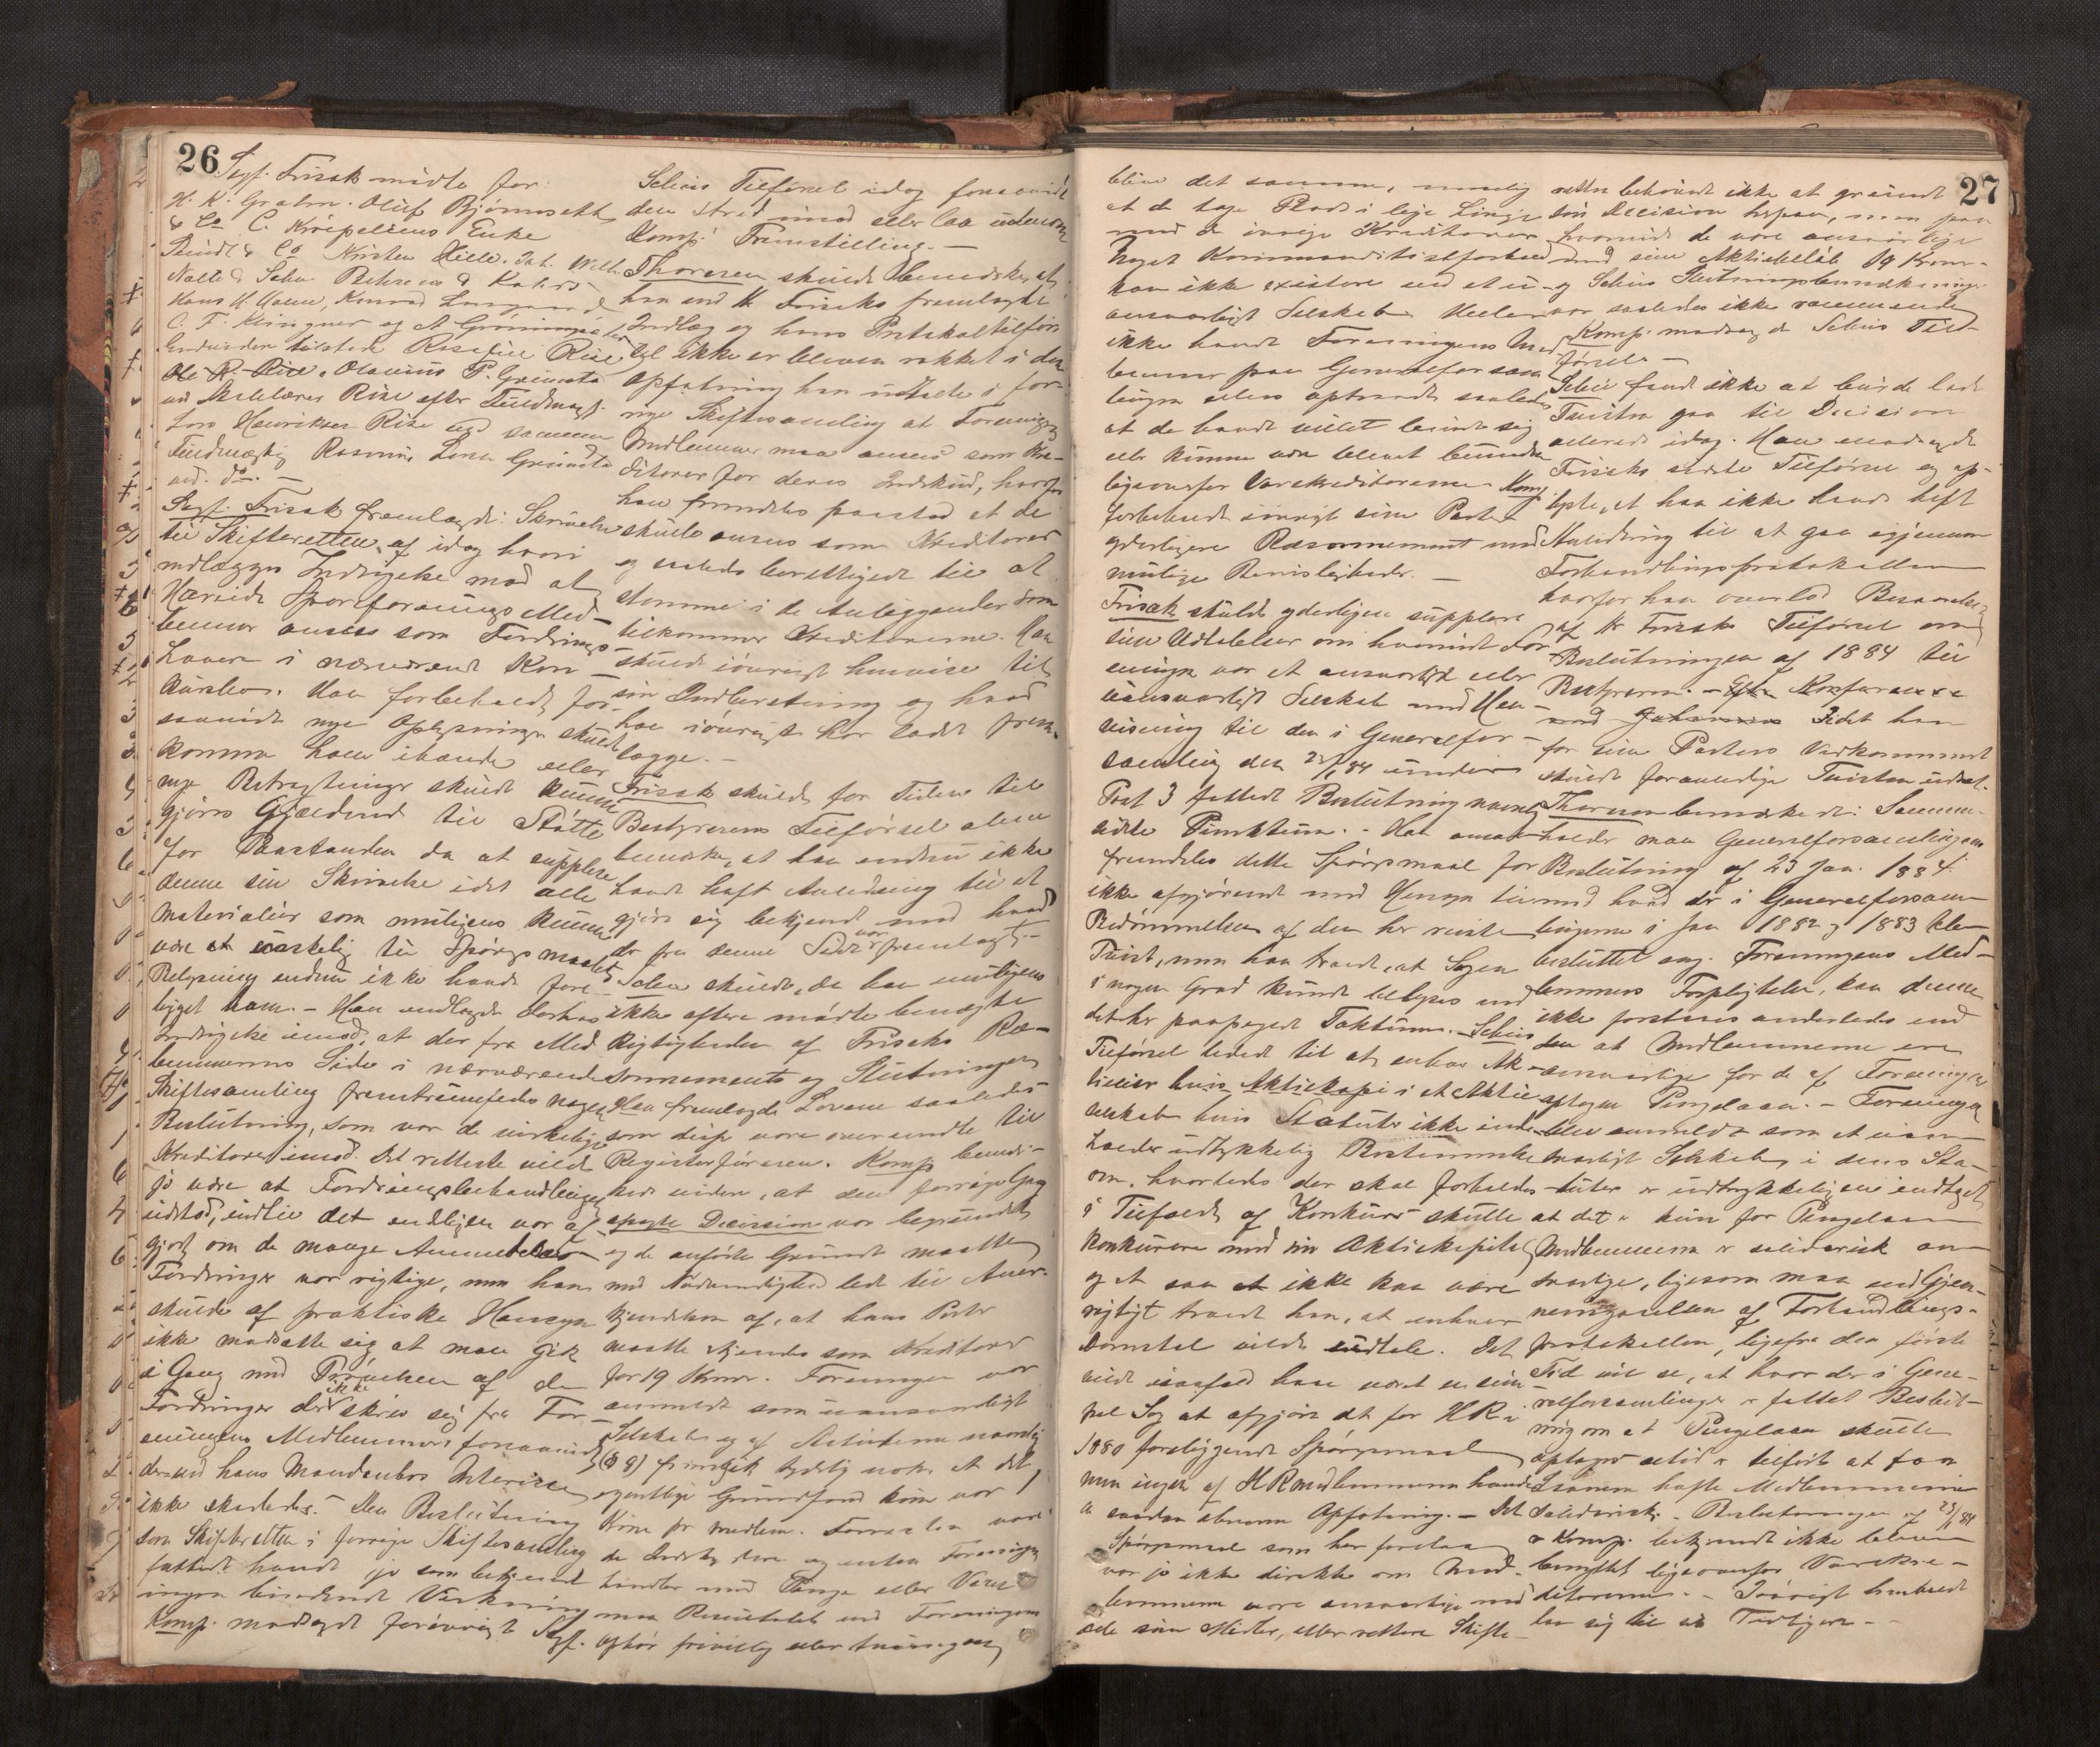 26
Sagf. Frisak mødte for:
H. K. Grahn. Oluf Bjørnseth
& Co C. Krøpeliens Enke
& Co Kirsten Hille. Joh. Wilh.
Nolte & Søhn Behrens &
Hans H. Konrad
O. F. Klingner og A. Grønningsæter
Endvidere tilstede Rise
Ole R. Rise, Olavius P. Grimsta
ved Rise efter Fuldmagt.
Lars Henriksen Rise ved samme
Fuldmægtig Rasmus Grimsta
ved do. —
Sagf. Frisak fremlagde: Skrivelse
til Skifteretten af idag hvori
nedlægges Indsigelse mod at
Hareids Spareforenings Med-
lemmer ansees som Fordrings-
havere i nærværende Kon-
kursbo. Han forbeholdt for-
saavidt nye Oplysninger skulde
komme ham ihænde eller
nye Betragtninger skulde kunne
gjøres Gjældende til Støtte
for Paastanden da at supplere
denne sin Skrivelse idet alle
Materialier som muligens kunne
være at til Spørgsmaalets
Belysning endnu ikke havde fore-
ligget ham. — Han nedlagde derhos
Indsigelse imod, at der fra Med-
lemmernes Side i nærværende
Skiftesamling fremtrumfedes nogen
Beslutning, som var de virkelige
Kreditorer imod. Det retteste vilde
jo være at Fordringsbehandlingen
udstod, indtil det endeligen var af-
gjort om de mange Anmeldelser
Fordringer var rigtige, men han
skulde af praktiske Hensyn
ikke modsætte sig at man gik
i Gang med Prøvelsen af de
Fordringer der ikke skrev sig fra For-
eningens Medlemmer forsaavidt
derved hans Mandanters Interesse
ikke skadedes. — Den Beslutning
som Skifteretten i forrige Skiftesamling
fattede havde jo som bekjendt
ingen bindende Virkning
Komp. modsagde forøvrigt Sagf.
Selius Tilførsel idag forsaavidt
den stred imod eller laa udenom
Komp! Fremstilling. —
Thoresen skulde bemærke, at
han ved Hr Frisaks fremlagte
Indlæg og hans Protokoltilfør-
sel ikke er bleven rokket i den
Opfatning han udtalte i for-
rige Skiftesamling at Foreningens
Medlemmer maa ansees som Kre-
ditorer for deres Indskud, hvorfor
han fremdeles paastod at de
skulde ansees som Kreditorer
og saaledes berettigede til at
stemme i de Anliggender som
tilkommer Kreditorerne. Han
skulde iøvrigt henvise til
sin Indberetning og hvad
han iøvrigt har ladet frem-
lægge. —
Frisak skulde for Tiden til
Bestyrerens Tilførsel alene
bemærke, at han endnu ikke
havde haft Anledning til at
gjøre sig bekjendt med hvad
der fra denne Side var fremlagt. —
Selius skulde, da han muligens
ikke oftere mødte benægte
Rigtigheden af Frisaks Ræ-
sonnements og Slutninger
Han fremlagde Lovene saaledes
som disse vare oversendte til
Registerføreren. Komp. bemær-
kede videre, at den forrige Gang
Decision var begrundet
og de anførte Grunde maatte
med Nødvendighed lede til Aner-
kjendelsen af, at hans Parter
maatte kjendes som Kreditorer
for 19 Kroner. Foreningen var
anmeldt som uansvarligt
Selskab og af Statuterne navnlig
(§ 8) fremgik tydelig nok, at det
egentlige Grundfond kun var 1
Krone pr Medlem. Forresten var
de Indsky dere og enten Foreningen
handler med Penge eller Varer
maa Resultatet ved Foreningens
Ophør frivillig eller tvungen
27
blive det samme, nemlig
at de tage Plads i lige Linje
med de øvrige Kreditorer
Noget Kommanditistforhold
kan ikke existere ved et u-
ansvarligt Selskab. Heller
ikke havde Foreningens Med-
lemmer paa Generalforsam-
lingen eller optraadt saaledes
at de havde villet binde sig
eller kunne være blevet bundne
ligeoverfor Varekreditorerne. Komp.
forbeholdt iøvrigt sine Parter
yderligere Ræsonnement med
mulige Bevisligheder. —
Frisak skulde yderligere supplere
sine Udtalelser om hvorvidt For-
eningen var et ansvarligt eller
uansvarligt Selskab med Hen-
visning til den i Generalfor-
samling den 23/1 84 under
Post 3 fattede Beslutning navnlig
sidste Punktum. – Han ansaa
fremdeles dette Spørgsmaal for
ikke afgjørende med Hensyn til
Bedømmelsen af den her reiste
Tvist, men han troede, at Sagen
i nogen Grad kunde belyses ved
det her paapegede Faktum. — Selius
Tilførsel ledede til at enhver Ak-
tieeier hvis Aktiekapi- i et Aktie-
selskab hvis Statuter ikke inde-
holder udtrykkelig Bestemmelse
om, hvorledes der skal forholdes
i Tilfælde af Konkurs skulle
konkurere med sin Aktiekapital
og at saa at ikke kan være
rigtigt troede han, at enhver
Domstol vilde udtale. Det
vilde isaafald have været en sim-
pel Sag at afgjøre det for HR i
1880 foreliggende Spørgsmaal
men ingen af HRmedlemmerne havde
en saadan abnorm Opfatning. — Det
Spørgsmaal som her forelaa
var jo ikke direkte om Med-
lemmerne vare ansvarlige med
alle sine Midler, eller rettere Skifte-
retten behøvede ikke at grunde
sin Decision herpaa, men paa
hvorvidt de vare ansvarlige
med sine Aktiebeløb 19 Kroner
og Selius Slutningsbemærkninger
var saaledes ikke rammende
Komp. modsagde Selius Til-
førsel. —
Selius fandt ikke at burde lade
Tvisten gaa til Decision
allerede idag. Han modsagde
Frisaks sidste Tilførsel og op-
lyste, at han ikke havde haft
Anledning til at gaa igjennem
Forhandlingsprotokollen
hvorfor han overlod Besvarelsen
af Hr Frisaks Tilførsel om
Beslutningen af 1884 til
Bestyreren. — Efter Konferance
med Johannes Idet han
for sine Parters Vedkommende
skulde foranledige Tvisten udsat.
Thoresen bemærkede: Sammen-
holder man Generalforsamlingens
Beslutning af 23 Jan. 1884.
med hvad der i Generalforsam-
lingerne i Jan 1882 og 1883 blev
besluttet ang. Foreningens Med-
lemmers Forpligtelse, kan denne
ikke forstaaes anderledes end
at Medlemmerne ere
ansvarlige for de af Foreningen
optagne Pengelaan. — Foreningen
blev anmeldt som et uan-
svarligt Selskab, i dens Sta-
tuter er udtrykkeligen indtaget
at det er kun for Pengelaan
Medlemmerne er solidarisk an-
svarlige, ligesom man ved Gjen-
nemgaaelsen af Forhandlings-
protokollen, ligefra den første
Tid vil se, at hvor der i Gene-
ralforsamlinger er fattet Beslut-
ning om at Pengelaan skulle
optages altid er tilført at for
saadanne hafte Medlemmerne
solidarisk. — Beslutningen af 23/1 84
er Komp. bekjendt ikke bleven
benyttet ligeoverfor Varekre-
ditorerne. — Iøvrigt henholdt
han sig til sit Tidligere. —